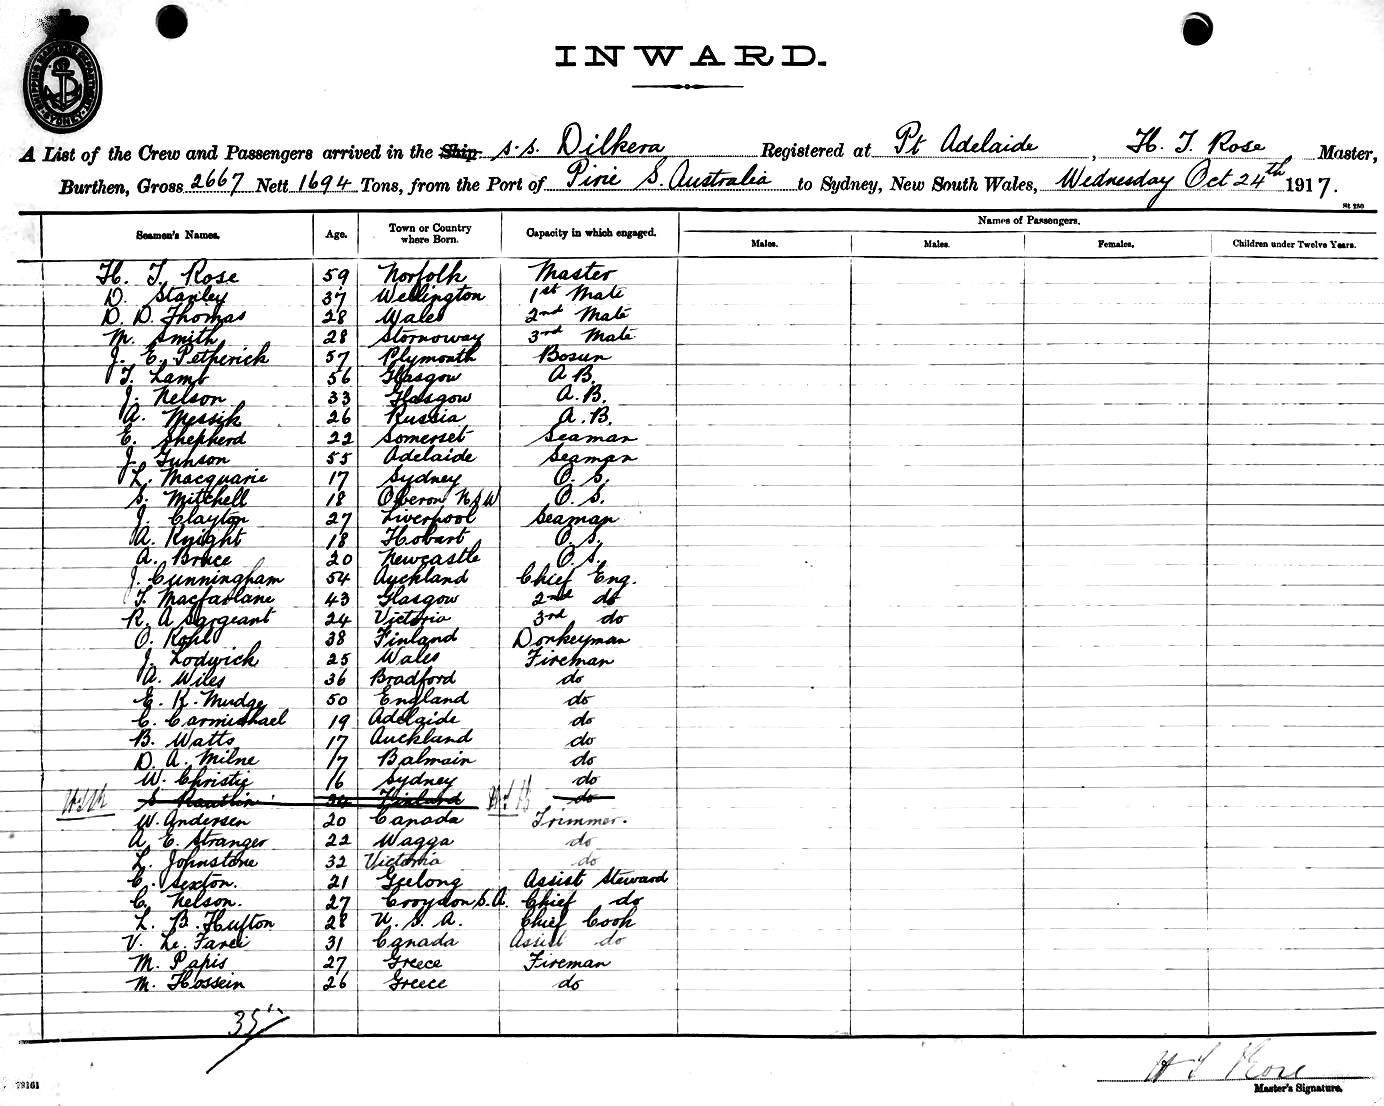 INWARD.
SHIPPING MASTERS DEPARTMENT SYDNEY
A List of the Crew and Passengers arrived in the Ship s.s. Dilkera Registered at Pt Adelaide, H. T. Rose Master,
Burthen, Gross 2667 Nett 1694 Tons, from the Port of Pirie S. Australia to Sydney, New South Wales, Wednesday Oct 24th 1917.
St 250
Seamen's Names. Age. Town or Country where Born. Capacity in which engaged. Names of Passengers.
Males. Males. Females. Children under Twelve Years.
H. T. Rose 59 Norfolk Master
D. Stanley 37 Wellington 1st Mate
D. D. Thomas 28 Wales 2nd Mate
M. Smith 28 Stornoway 3rd Mate
J. E. Petherick 57 Plymouth Bosun
T. Lamb 56 Glasgow A.B.
J. Nelson 33 Glasgow A.B.
A. Messik 26 Russia A.B.
E. Shepherd 22 Somerset Seaman
J. Gunson 55 Adelaide Seaman
L. Macquarie 17 Sydney O.S.
S. Mitchell 18 Oberon NSW O.S.
J. Clayton 27 Liverpool Seaman
A. Knight 18 Hobart O.S.
A. Bruce 20 Newcastle O.S.
J. Cunningham 54 Auckland Chief Eng.
T. Macfarlane 43 Glasgow 2nd do
R. A Sargeant 24 Victoria 3rd do
O. Rohl 38 Finland Donkeyman
J. Lodwick 25 Wales Fireman
A. Wiles 36 Bradford do
E. K. Mudge 50 England do
C. Carmichael 19 Adelaide do
B. Watts 17 Auckland do
D. A. Milne 17 Balmain do
W. Christie 16 Sydney do
Finland do
W. Andersen 20 Canada Trimmer.
A. E. Stranger 22 Wagga do
L. Johnstone 32 Victoria do
C. Sexton. 21 Geelong Assist Steward
C. Nelson. 27 Croydon S.A. Chief do
L. B. Hufton 28 U.S.A. Chief Cook
V. Le. 31 Canada Assist do
M. Papis 27 Greece Fireman
M. Hossein 26 Greece do
35
H T Rose
79161 Master's Signature.